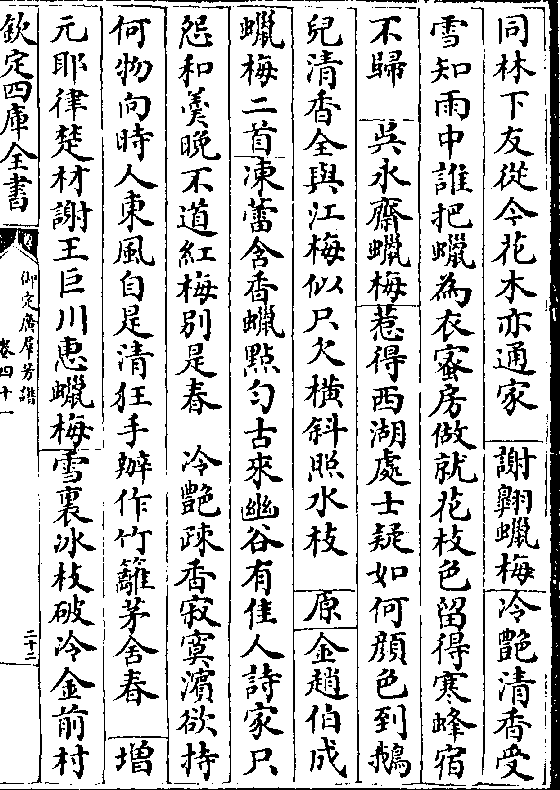 同林下友從今花木亦通家　謝翺蠟梅冷艷清香受
雪知雨中誰把蠟為衣蜜房做就花枝色留得寒蜂宿
不歸　吳永齋蠟梅惹得西湖處士疑如何顔色到鵝
兒清香全與江梅似只欠橫斜照水枝　原金趙伯成
蠟梅二首凍蕾含香蠟點勻古來幽谷有佳人詩家只
怨和羮晚不道紅梅別是春　冷艷疎香寂寞濵欲持
何物向時人東風自是清狂手辦作竹籬茅舍春　增
元耶律楚材謝王巨川惠蠟梅雪裏冰枝破冷金前村
欽定四庫全書
御定廣羣芳譜
卷四十一
二十二